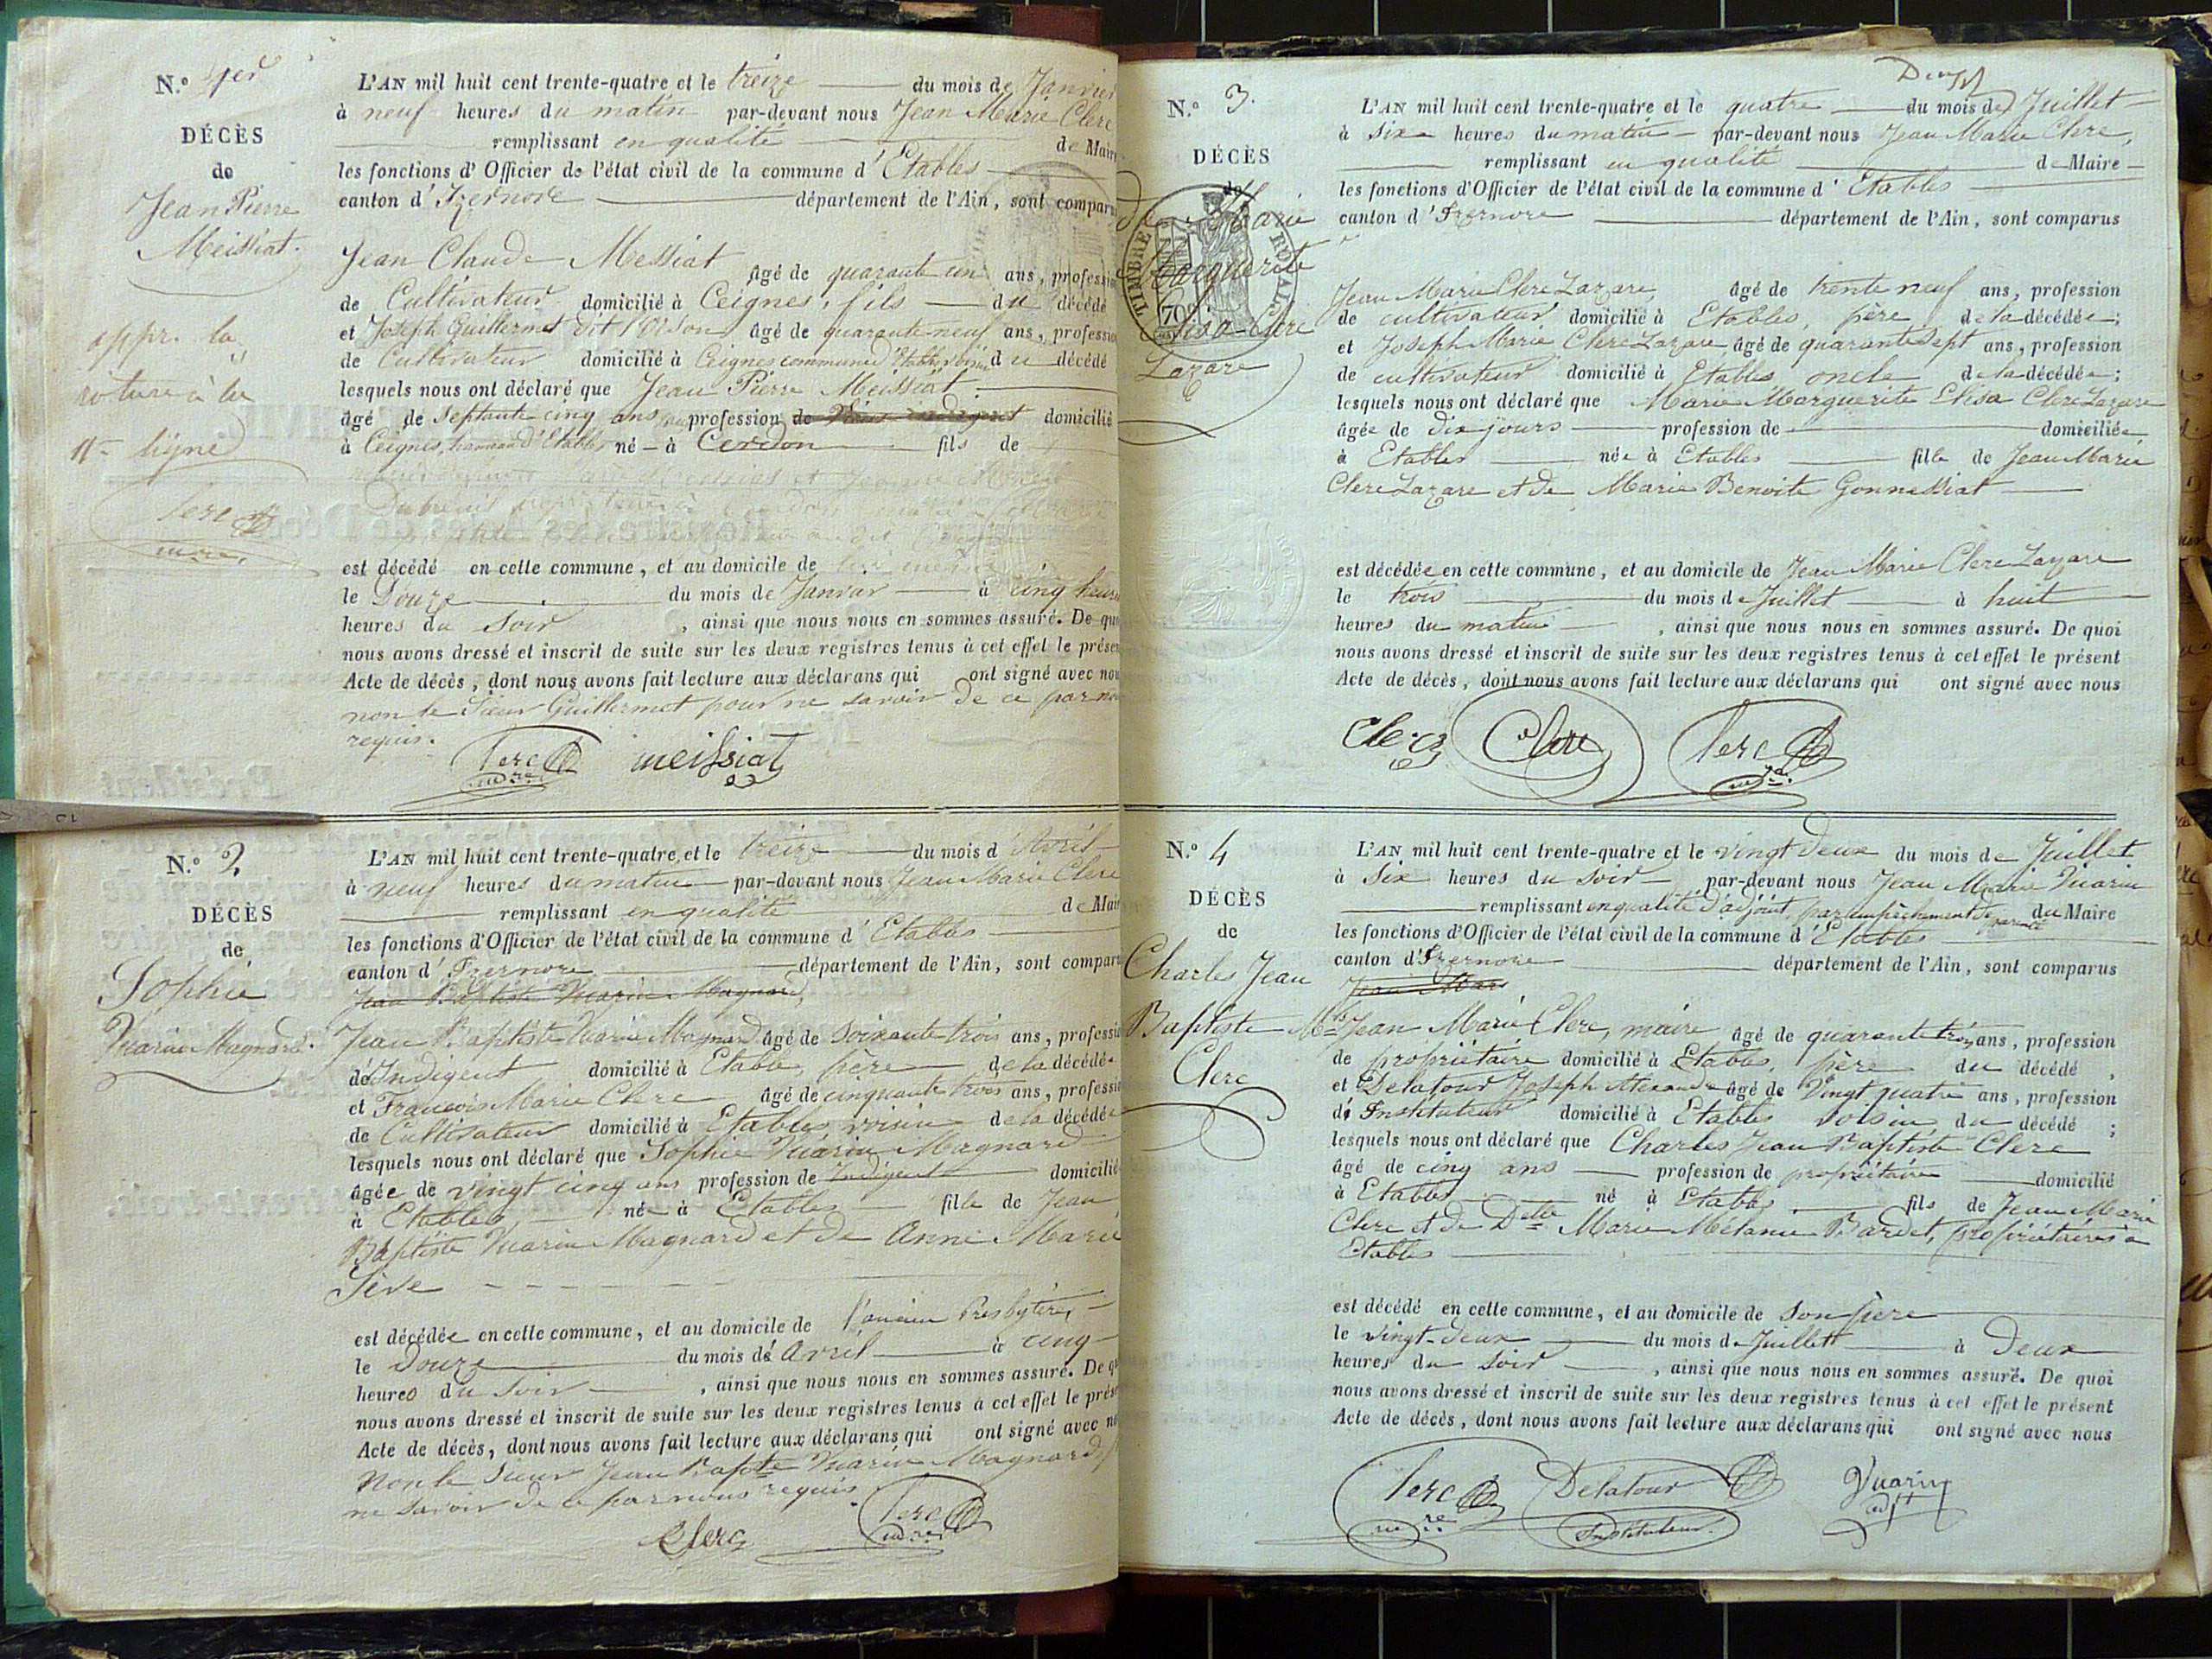 N.º 1er
DÉCÈS
de
Jean Pierre
Meissiat.
appr. la
roture à la
11e ligne
Clerc
mre
L'AN mil huit cent trente-quatre et le treize du mois de Janvier
à neuf heures du matin par-devant nous Jean Marie Clerc
remplissant en qualité de Maire
les fonctions d'Officier de l'état civil de la commune d'Etables
canton d'Izernore département de l'Ain, sont comparus
Jean Claude Messiat âgé de quarante un ans, profession
de Cultivateur domicilié à Ceignes, fils du décédé
et Joseph Guillermet dit l'Oison âgé de quarante neuf ans, profession
de Cultivateur domicilié à Ceignes commune d'Etables voisin du décédé
lesquels nous ont déclaré que Jean Pierre Meissiat
âgé de septante cinq ans profession de domicilié
à Ceignes, hameau d'Etables né à Cerdon fils de
est décédé en cette commune, et au domicile de lui même
le Douze du mois de Janvier à cinq heures
heures du soir, ainsi que nous nous en sommes assuré. De quoi
nous avons dressé et inscrit de suite sur les deux registres tenus à cet effet le présent
Acte de décès, dont nous avons fait lecture aux déclarans qui ont signé avec nous
non le Sieur Guillermet pour ne savoir de ce par nous
requis.
Clerc mre meissiat
N.º 2
DÉCÈS
de
Sophie
Vuarin Magnard.
L'AN mil huit cent trente-quatre, et le treize du mois d'Avril
à neuf heures du matin par-devant nous Jean Marie Clerc
remplissant en qualité de Maire
les fonctions d'Officier de l'état civil de la commune d'Etables
canton d'Izernore département de l'Ain, sont comparus
Jean Baptiste Vuarin Magnard,
Jean Baptiste Vuarin Magnard âgé de soixante trois ans, profession
de Indigent domicilié à Etables, père de la décédée
et François Marie Clerc âgé de cinquante trois ans, profession
de Cultivateur domicilié à Etables, voisin de la décédée
lesquels nous ont déclaré que Sophie Vuarin Magnard
âgée de vingt cinq ans profession de Indigent domiciliée
à Etables, née à Etables fille de Jean
Baptiste Vuarin Magnard et de Anne Marie
Sève
est décédée en cette commune, et au domicile de l'ancien Presbytère,
le Douze du mois de Avril à cinq
heures du soir, ainsi que nous nous en sommes assuré. De quoi
nous avons dressé et inscrit de suite sur les deux registres tenus à cet effet le présent
Acte de décès, dont nous avons fait lecture aux déclarans qui ont signé avec nous
non le Sieur Jean Bapte Vuarin Magnard p.
ne savoir de ce par nous requis
Clerc Clerc mre
N.º 3.
DÉCÈS
de
de Marie
Marguerite
Elisa Clerc
Lazare
TIMBRE ROYAL
70
L'AN mil huit cent trente-quatre et le quatre du mois de Juillet
à six heures du matin par-devant nous Jean Marie Clerc,
remplissant en qualité de Maire
les fonctions d'Officier de l'état civil de la commune d'Etables
canton d'Izernore département de l'Ain, sont comparus
Jean Marie Clerc Lazare âgé de trente neuf ans, profession
de cultivateur domicilié à Etables, père de la décédée;
et Joseph Marie Clerc Lazare, âgé de quarante sept ans, profession
de cultivateur domicilié à Etables oncle de la décédée;
lesquels nous ont déclaré que Marie Marguerite Elisa Clerc Lazare
âgée de dix jours profession de domiciliée
à Etables née à Etables fille de Jean Marie
Clerc Lazare et de Marie Benoite Gonnessiat
est décédée en cette commune, et au domicile de Jean Marie Clerc Lazare
le trois du mois de Juillet à huit
heures du matin, ainsi que nous nous en sommes assuré. De quoi
nous avons dressé et inscrit de suite sur les deux registres tenus à cet effet le présent
Acte de décès, dont nous avons fait lecture aux déclarans qui ont signé avec nous
Clerc Clerc Clerc mre
N.º 4
DÉCÈS
de
Charles Jean
Baptiste
Clerc
L'AN mil huit cent trente-quatre et le vingt deux du mois de Juillet
à six heures du soir par-devant nous Jean Marie Vuarin
remplissant en qualité d'adjoint, par empêchement de parenté du Maire
les fonctions d'Officier de l'état civil de la commune d'Etables
canton d'Izernore département de l'Ain, sont comparus
Jean Mari
Mr Jean Marie Clerc, maire âgé de quarante trois ans, profession
de propriétaire domicilié à Etables, père du décédé,
et Delatour Joseph Alexandre âgé de Vingt quatre ans, profession
de Instituteur domicilié à Etables voisin du décédé;
lesquels nous ont déclaré que Charles Jean Baptiste Clerc
âgé de cinq ans profession de propriétaire domicilié
à Etables né à Etables fils de Jean Marie
Clerc et de Delle Marie Mélanie Bardet, propriétaires à
Etables
est décédé en cette commune, et au domicile de son père
le vingt-deux du mois de Juillet à Deux
heures du soir, ainsi que nous nous en sommes assuré. De quoi
nous avons dressé et inscrit de suite sur les deux registres tenus à cet effet le présent
Acte de décès, dont nous avons fait lecture aux déclarans qui ont signé avec nous
Clerc mre Delatour Instituteur. Vuarin adjt